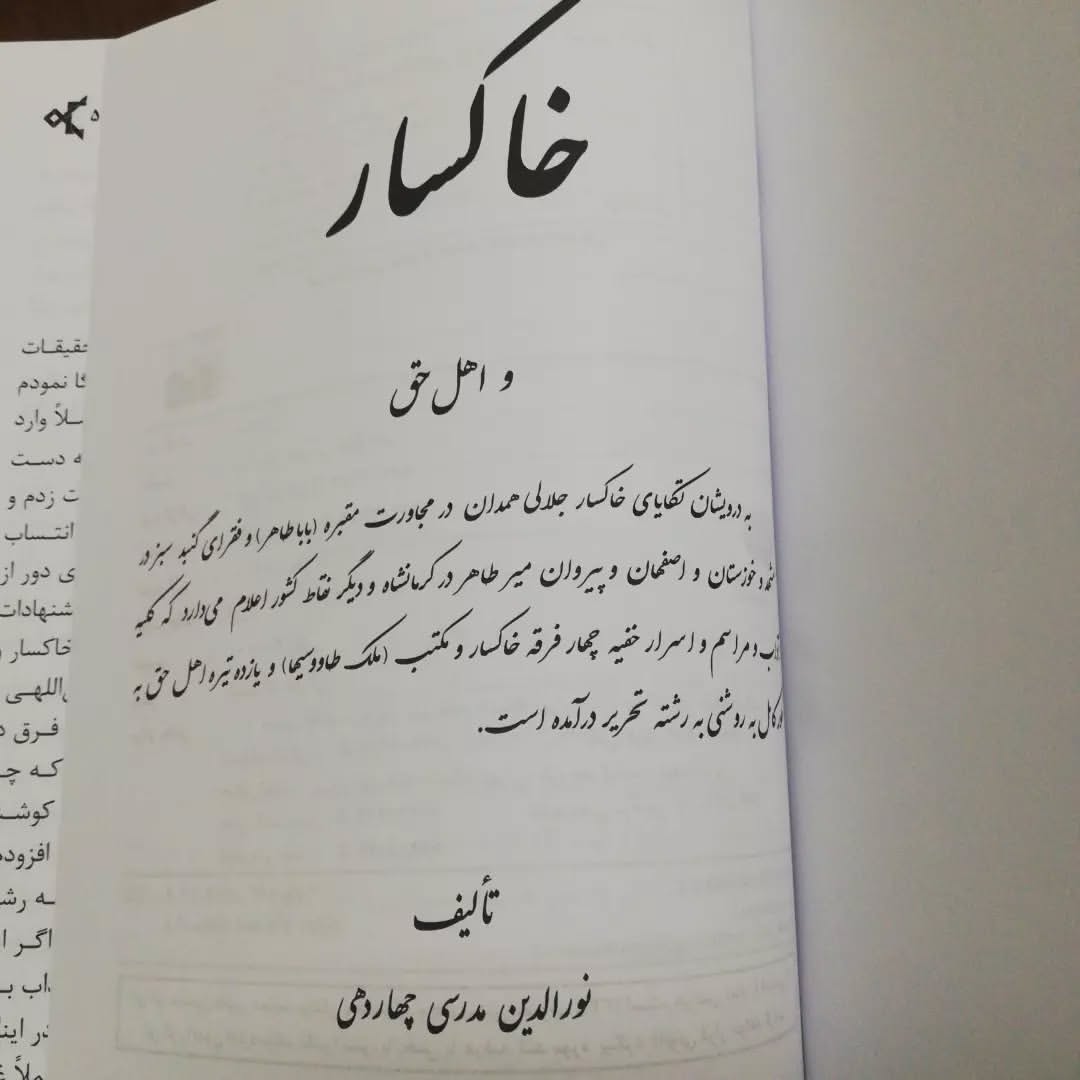 خاکسار
و اهل حق
به درویشان تکایای خاکسار جلالی همدان در مجاورت مقبره (بابا طاهر) و فقرای گنبد سبز در
خوزستان و اصفهان و پیروان میر طاهر در کرمانشاه و دیگر نقاط کشور اعلام می‌دارد که کلیه
و مراسم و اسرار خفیه چهار فرقه خاکسار و مکتب (ملک طاووسیها) و یازده تیره اهل حق به
کامل به روشنی به رشته تحریر درآمده است.
تألیف
نورالدین مدرسی چهاردهی
۵
حقیقـات
نمودم
وارد
دسـت
زدم و
انتسـاب
دور از
خاکسار
فـرق
کـه
افزوده
اگـر